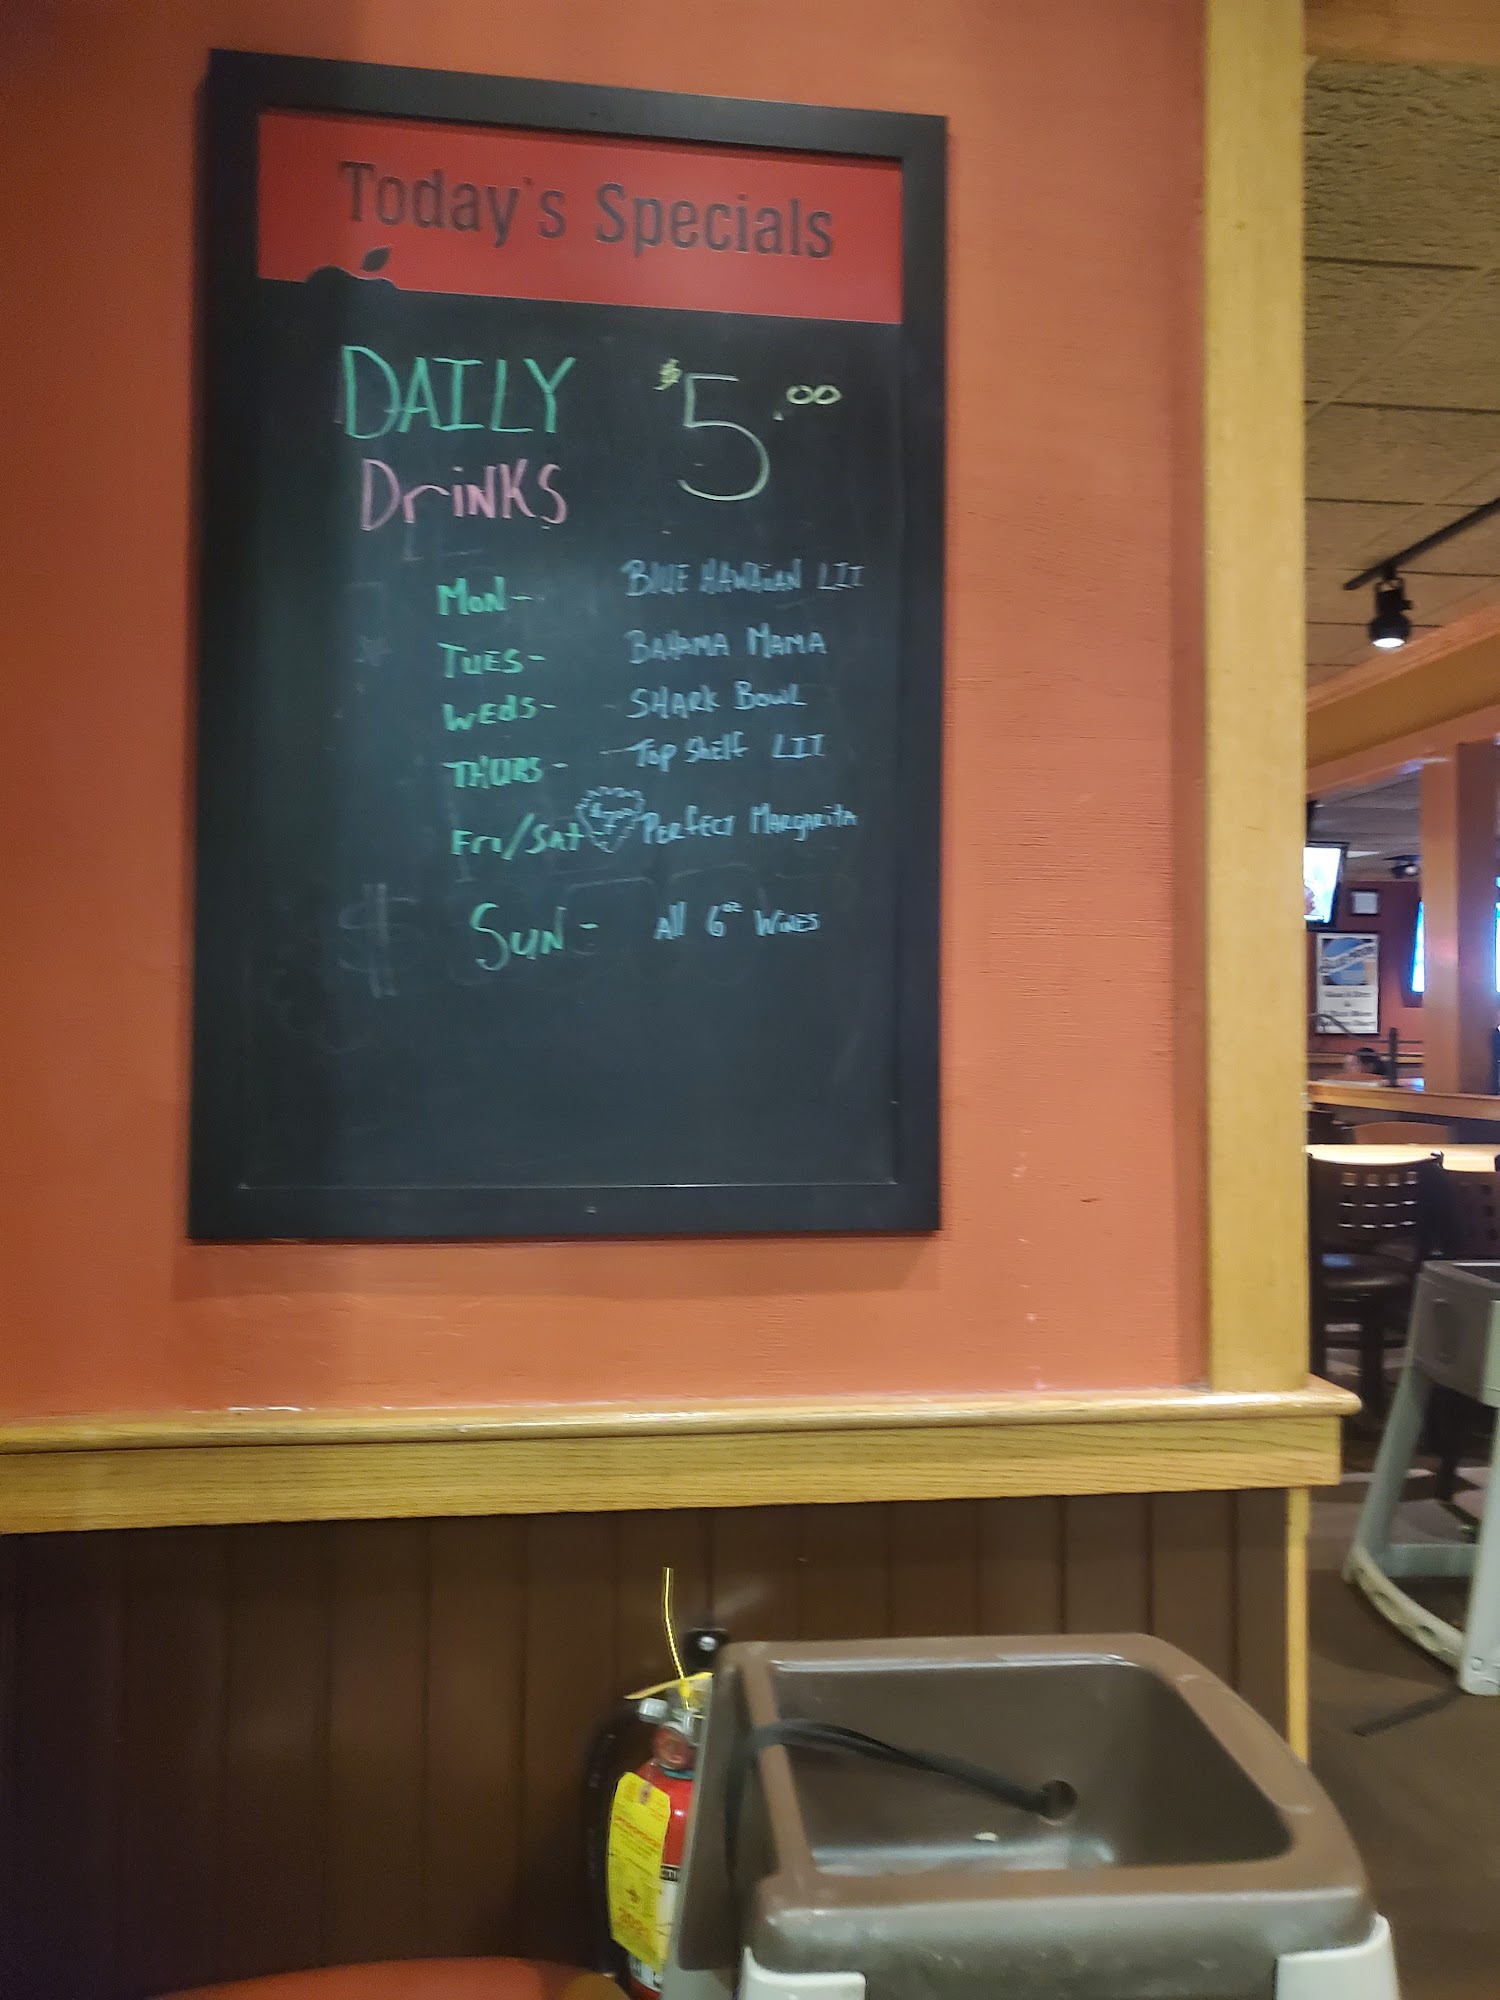 Today's Specials
DAILY $5.00
DrinKS
Mon- BLUE HAWAiiAN LIT
TUES- BAHAMA MAMA
Weds- SHARK BOWL
THURS- Top Shelf LIT
Fri/Sat PERfECT MARgARitA
SUN- All 6oz WiNES